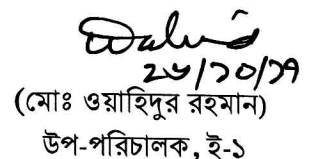 ২৬/১০/১৭
(মোঃ ওয়াহিদুর রহমান)
উপ-পরিচালক, ই-১